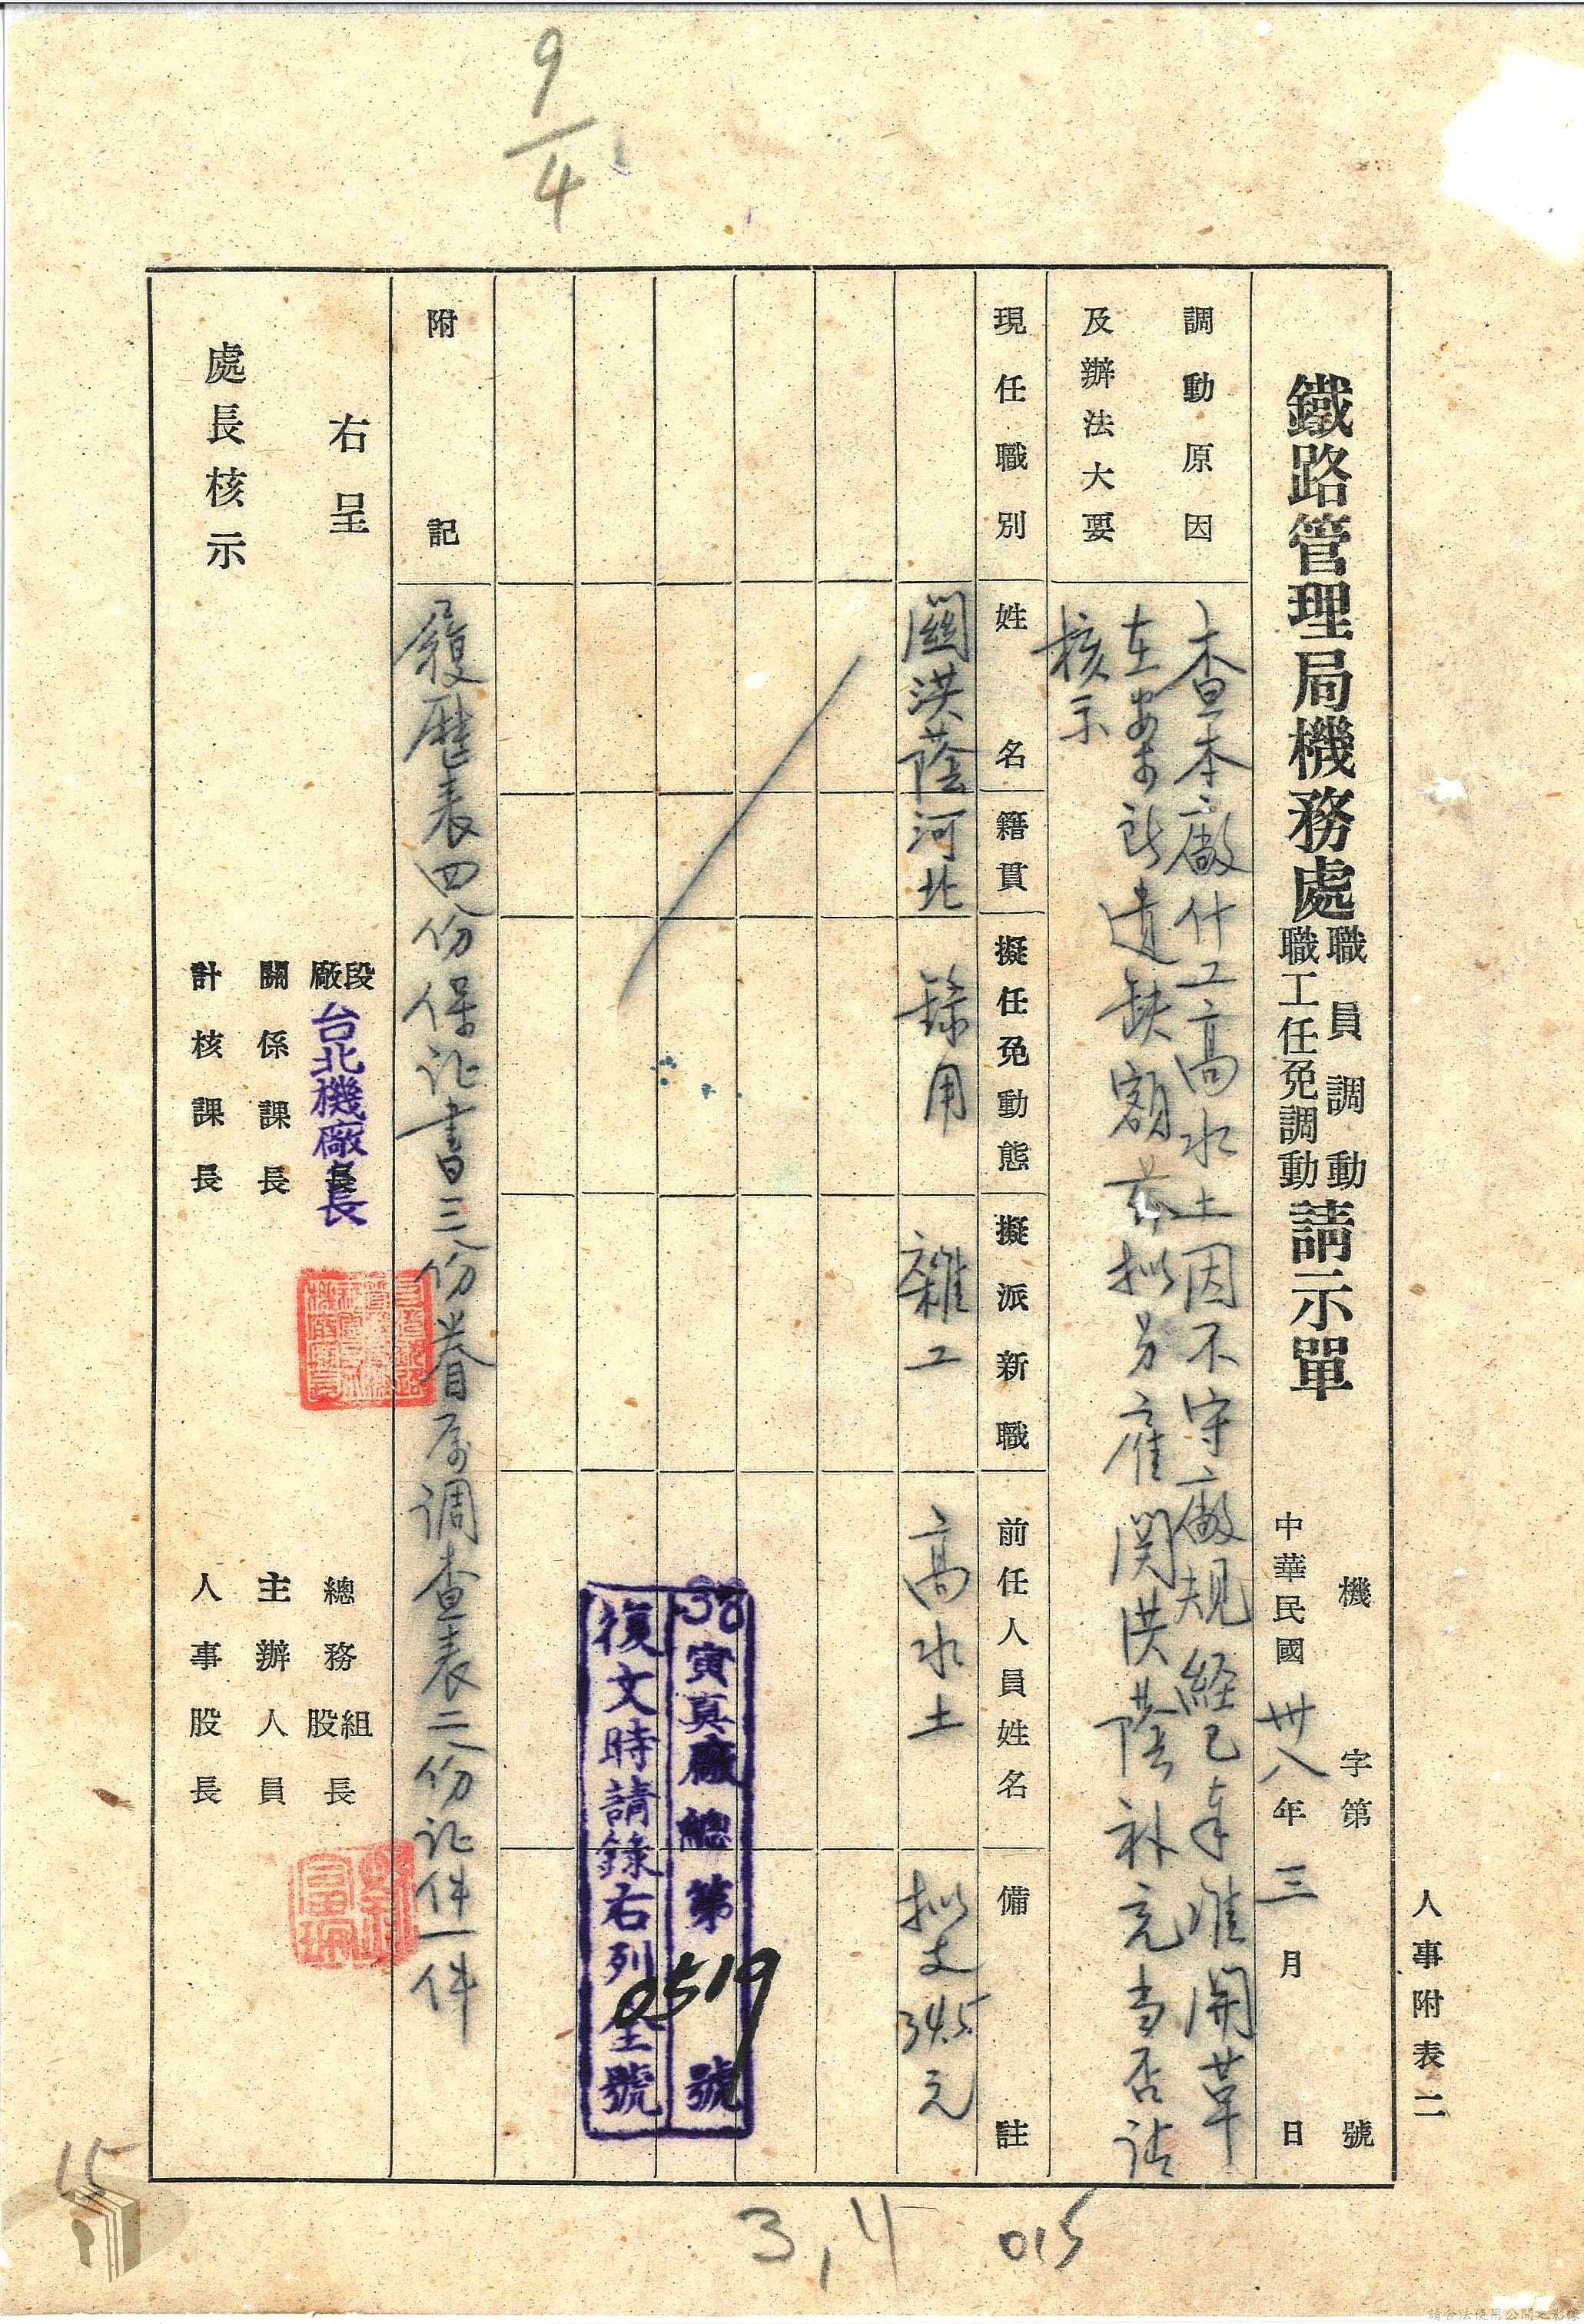 9/4
人事附表二
鐵路管理局機務處職員調動職工任免調動請示單
機 字第 號
中華民國卅八年三月 日
調動原因
及辦法大要
查本廠什工高水土因不守廠規経已奉准開革
在案所遺缺額茲拟另雇関洪蔭補充当否請
核示
現任職別 姓名 籍貫 擬任免動態 擬派新職 前任人員姓名 備註
關洪蔭 河北 錄用 雜工 高水土 拟支34.5元
38寅真廠總第0519號
復文時請錄右列全號
附記
履歷表四份保证書三份眷属调查表二份证件一件
右呈
處長核示
段廠長 台北機廠長
關係課長
計核課長
總務組股長
主辦人員
人事股長
3,11
015
15
請合法使用公開之影像